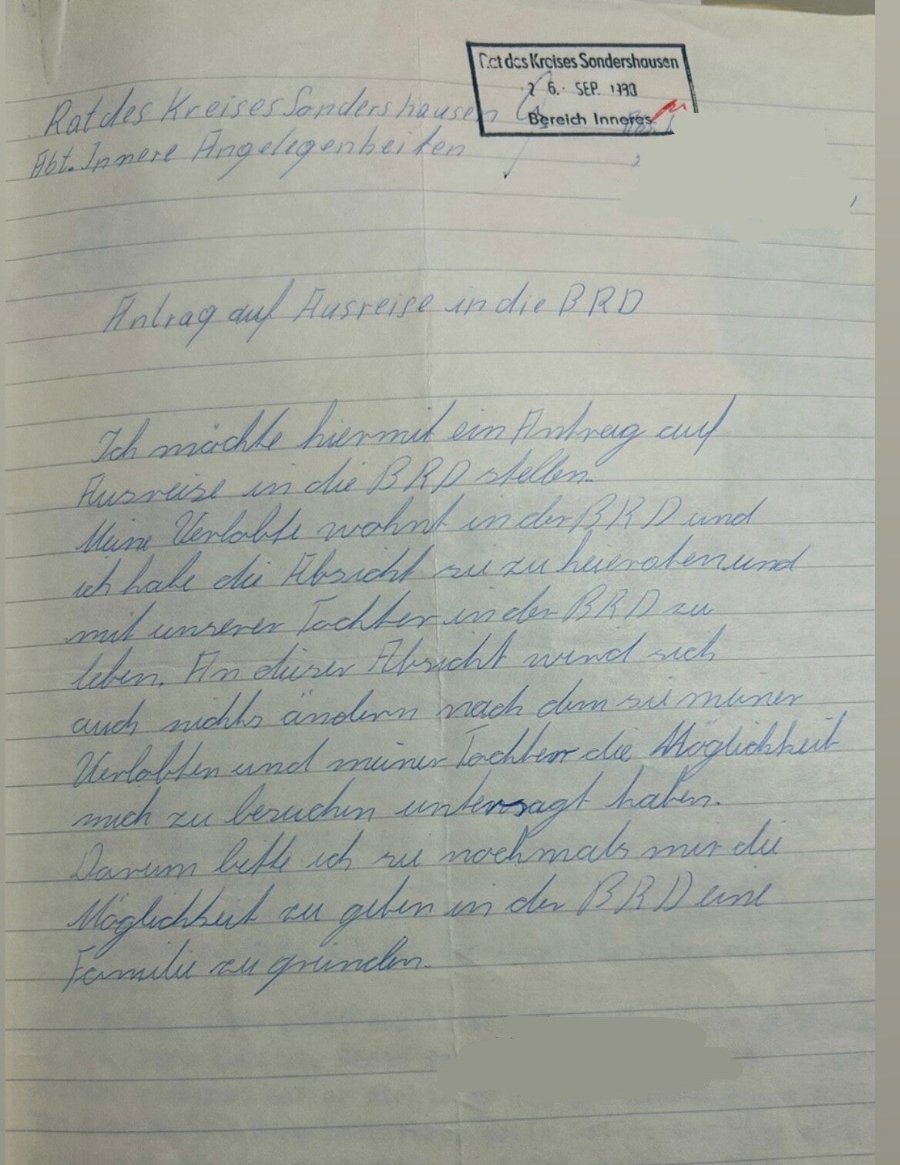 Rat des Kreises Sondershausen
26. SEP.
Bereich Inneres
Rat des Kreises Sondershausen
Abt. Innere Angelegenheiten
Antrag auf Ausreise in die BRD
Ich möchte hiermit ein Antrag auf
Ausreise in die BRD stellen.
Meine Verlobte wohnt in der BRD und
ich habe die Absicht sie zu heieraten und
mit unserer Tochter in der BRD zu
leben. An dieser Absicht wird sich
auch nichts ändern nach dem sie meiner
Verlobten und meiner Tochter die Möglichkeit
mich zu besuchen untersagt haben.
Darum bitte ich sie nochmals mir die
Möglichkeit zu geben in der BRD eine
Familie zu gründen.